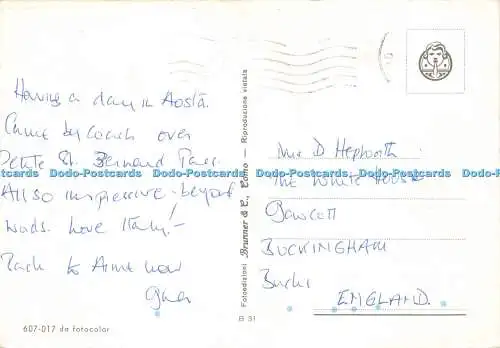 Having a day in Aosta.
Came by coach over
Petite St. Bernard Pass.
All so impressive - beyond
words. Love Italy! -
Back to Aime now
607-017 da fotocolor
Fotoedizioni Brunner & C., Como – Riproduzione vietata
B 31
D Hepworth.
The White House
Gawcott
BUCKINGHAM
Bucks
ENGLAND.
Dodo-Postcards Dodo-Postcards Dodo-Postcards Dodo-Postcards Dodo-Postcards Dodo-Postcards